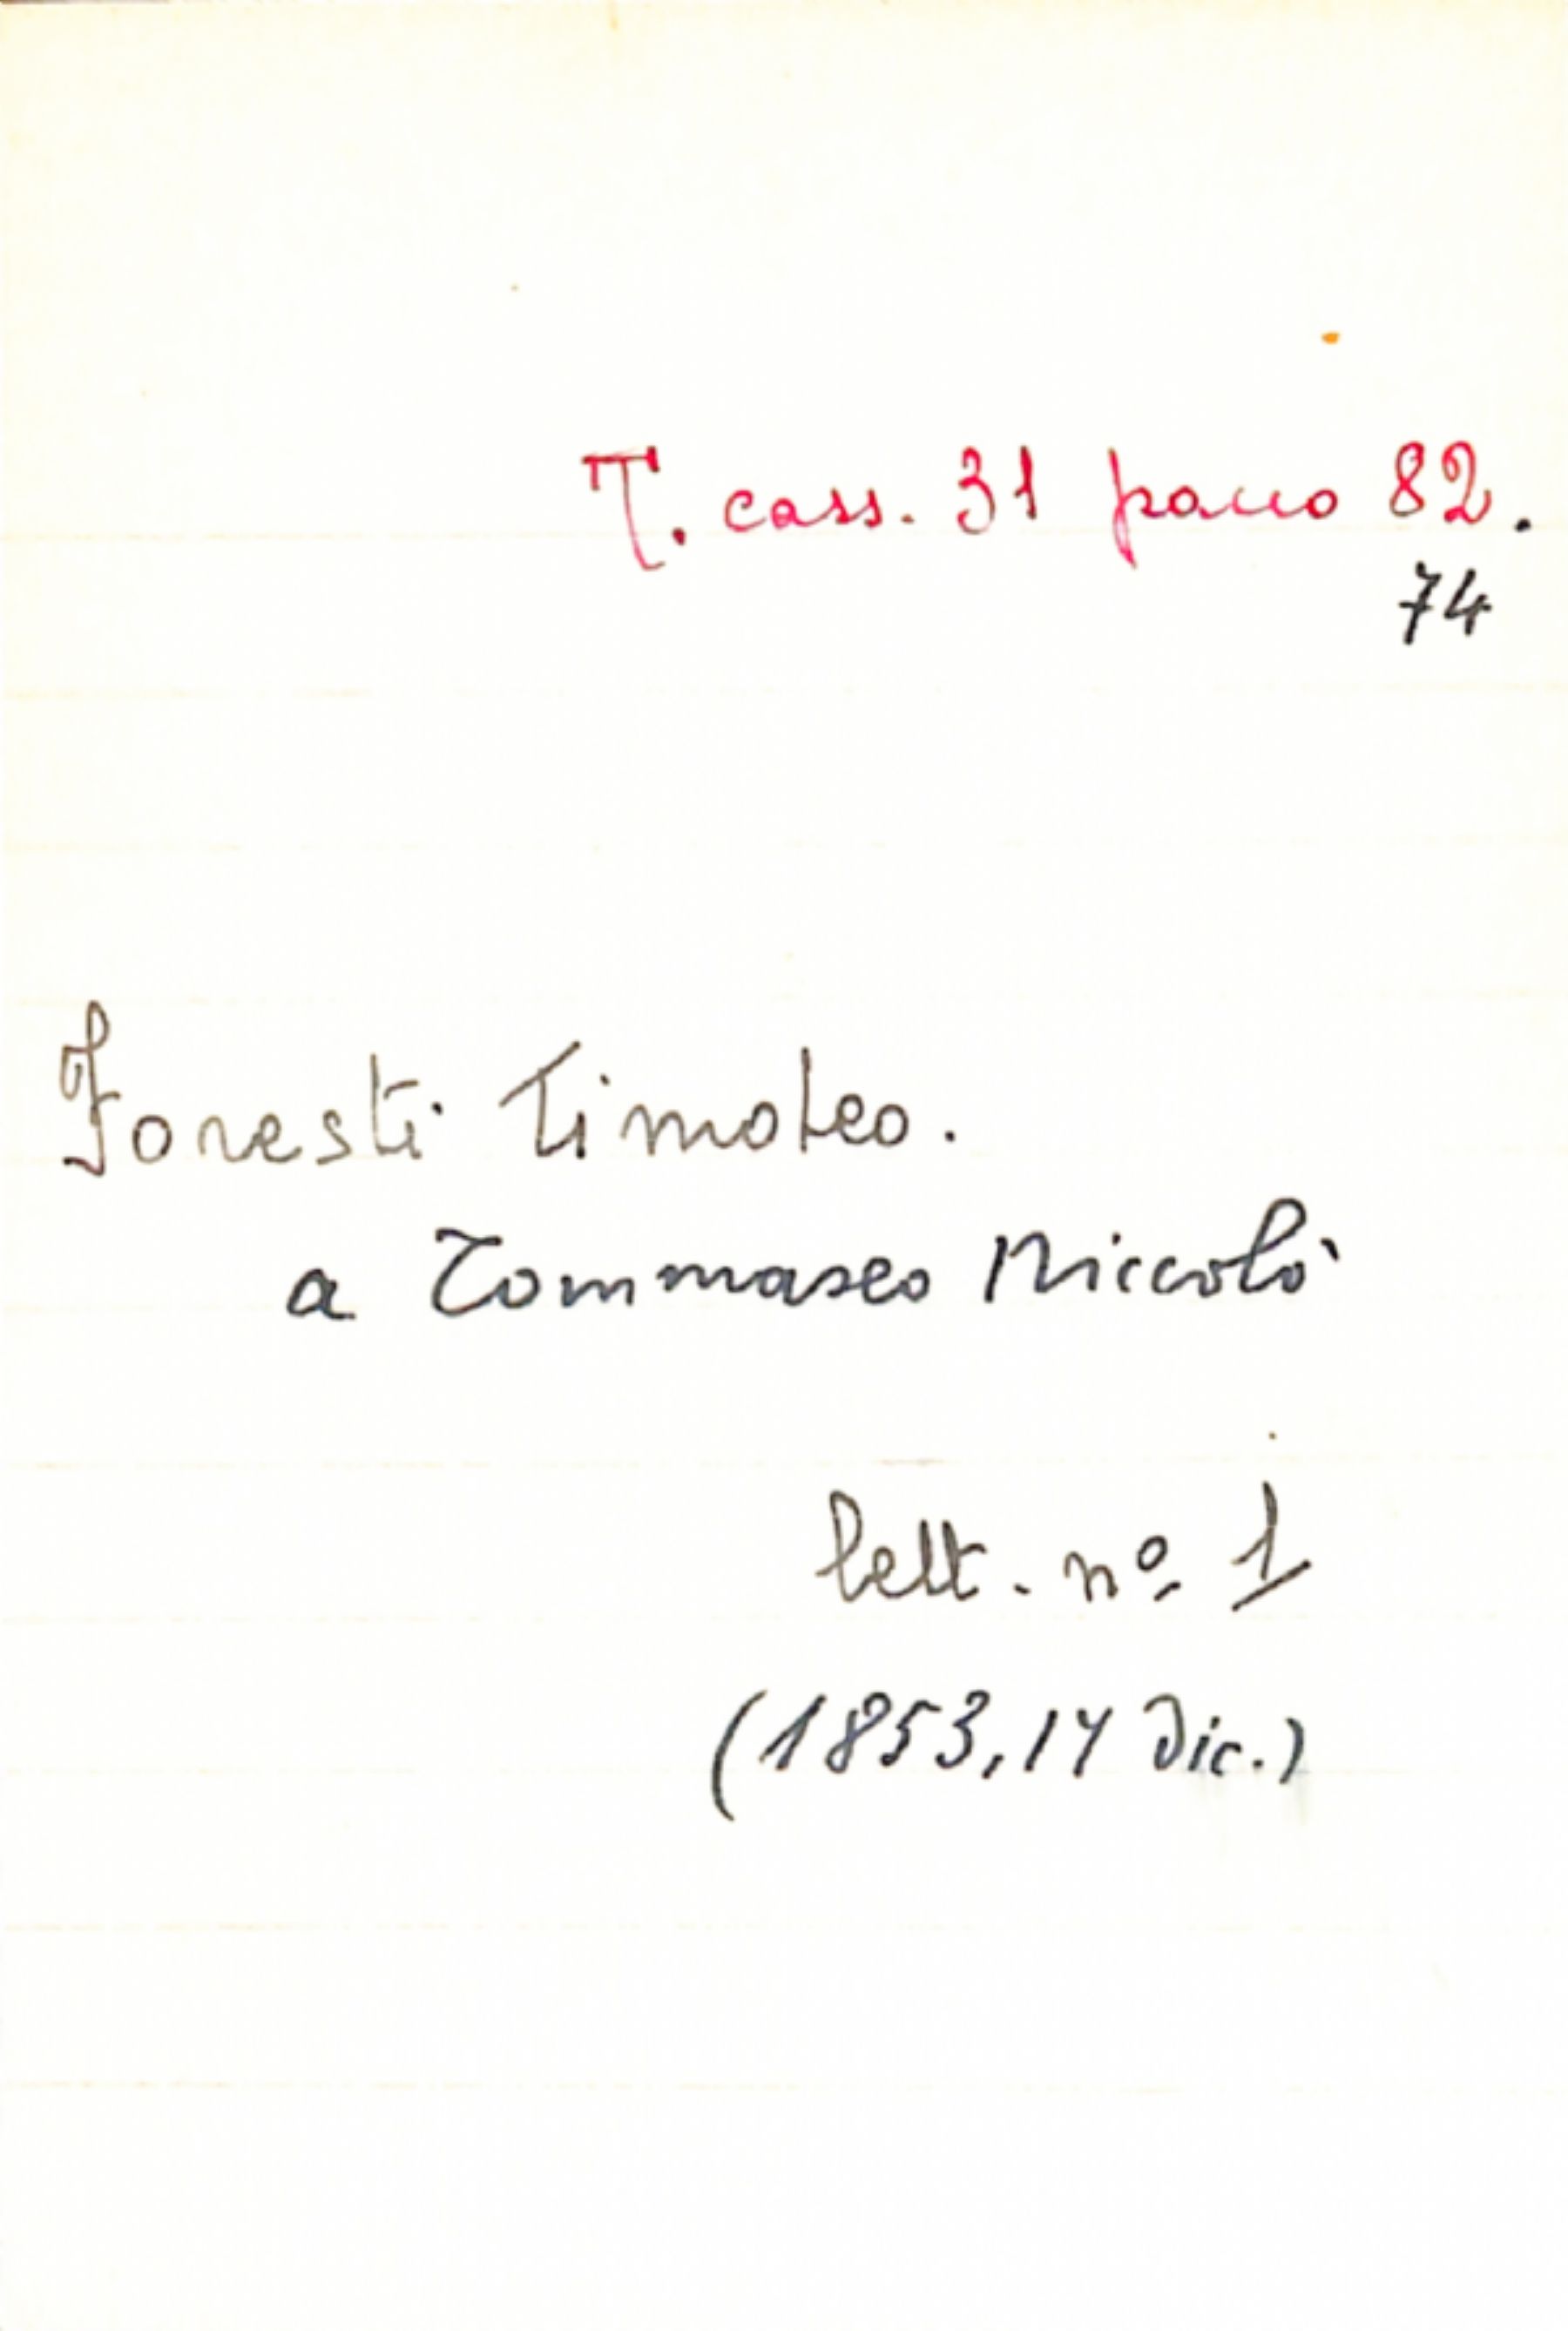 T. cass. 31 pacco 82.
74
Foresti Timoteo.
a Tommaseo Niccolò
lett. nº 1
(1853, 14 Dic.)